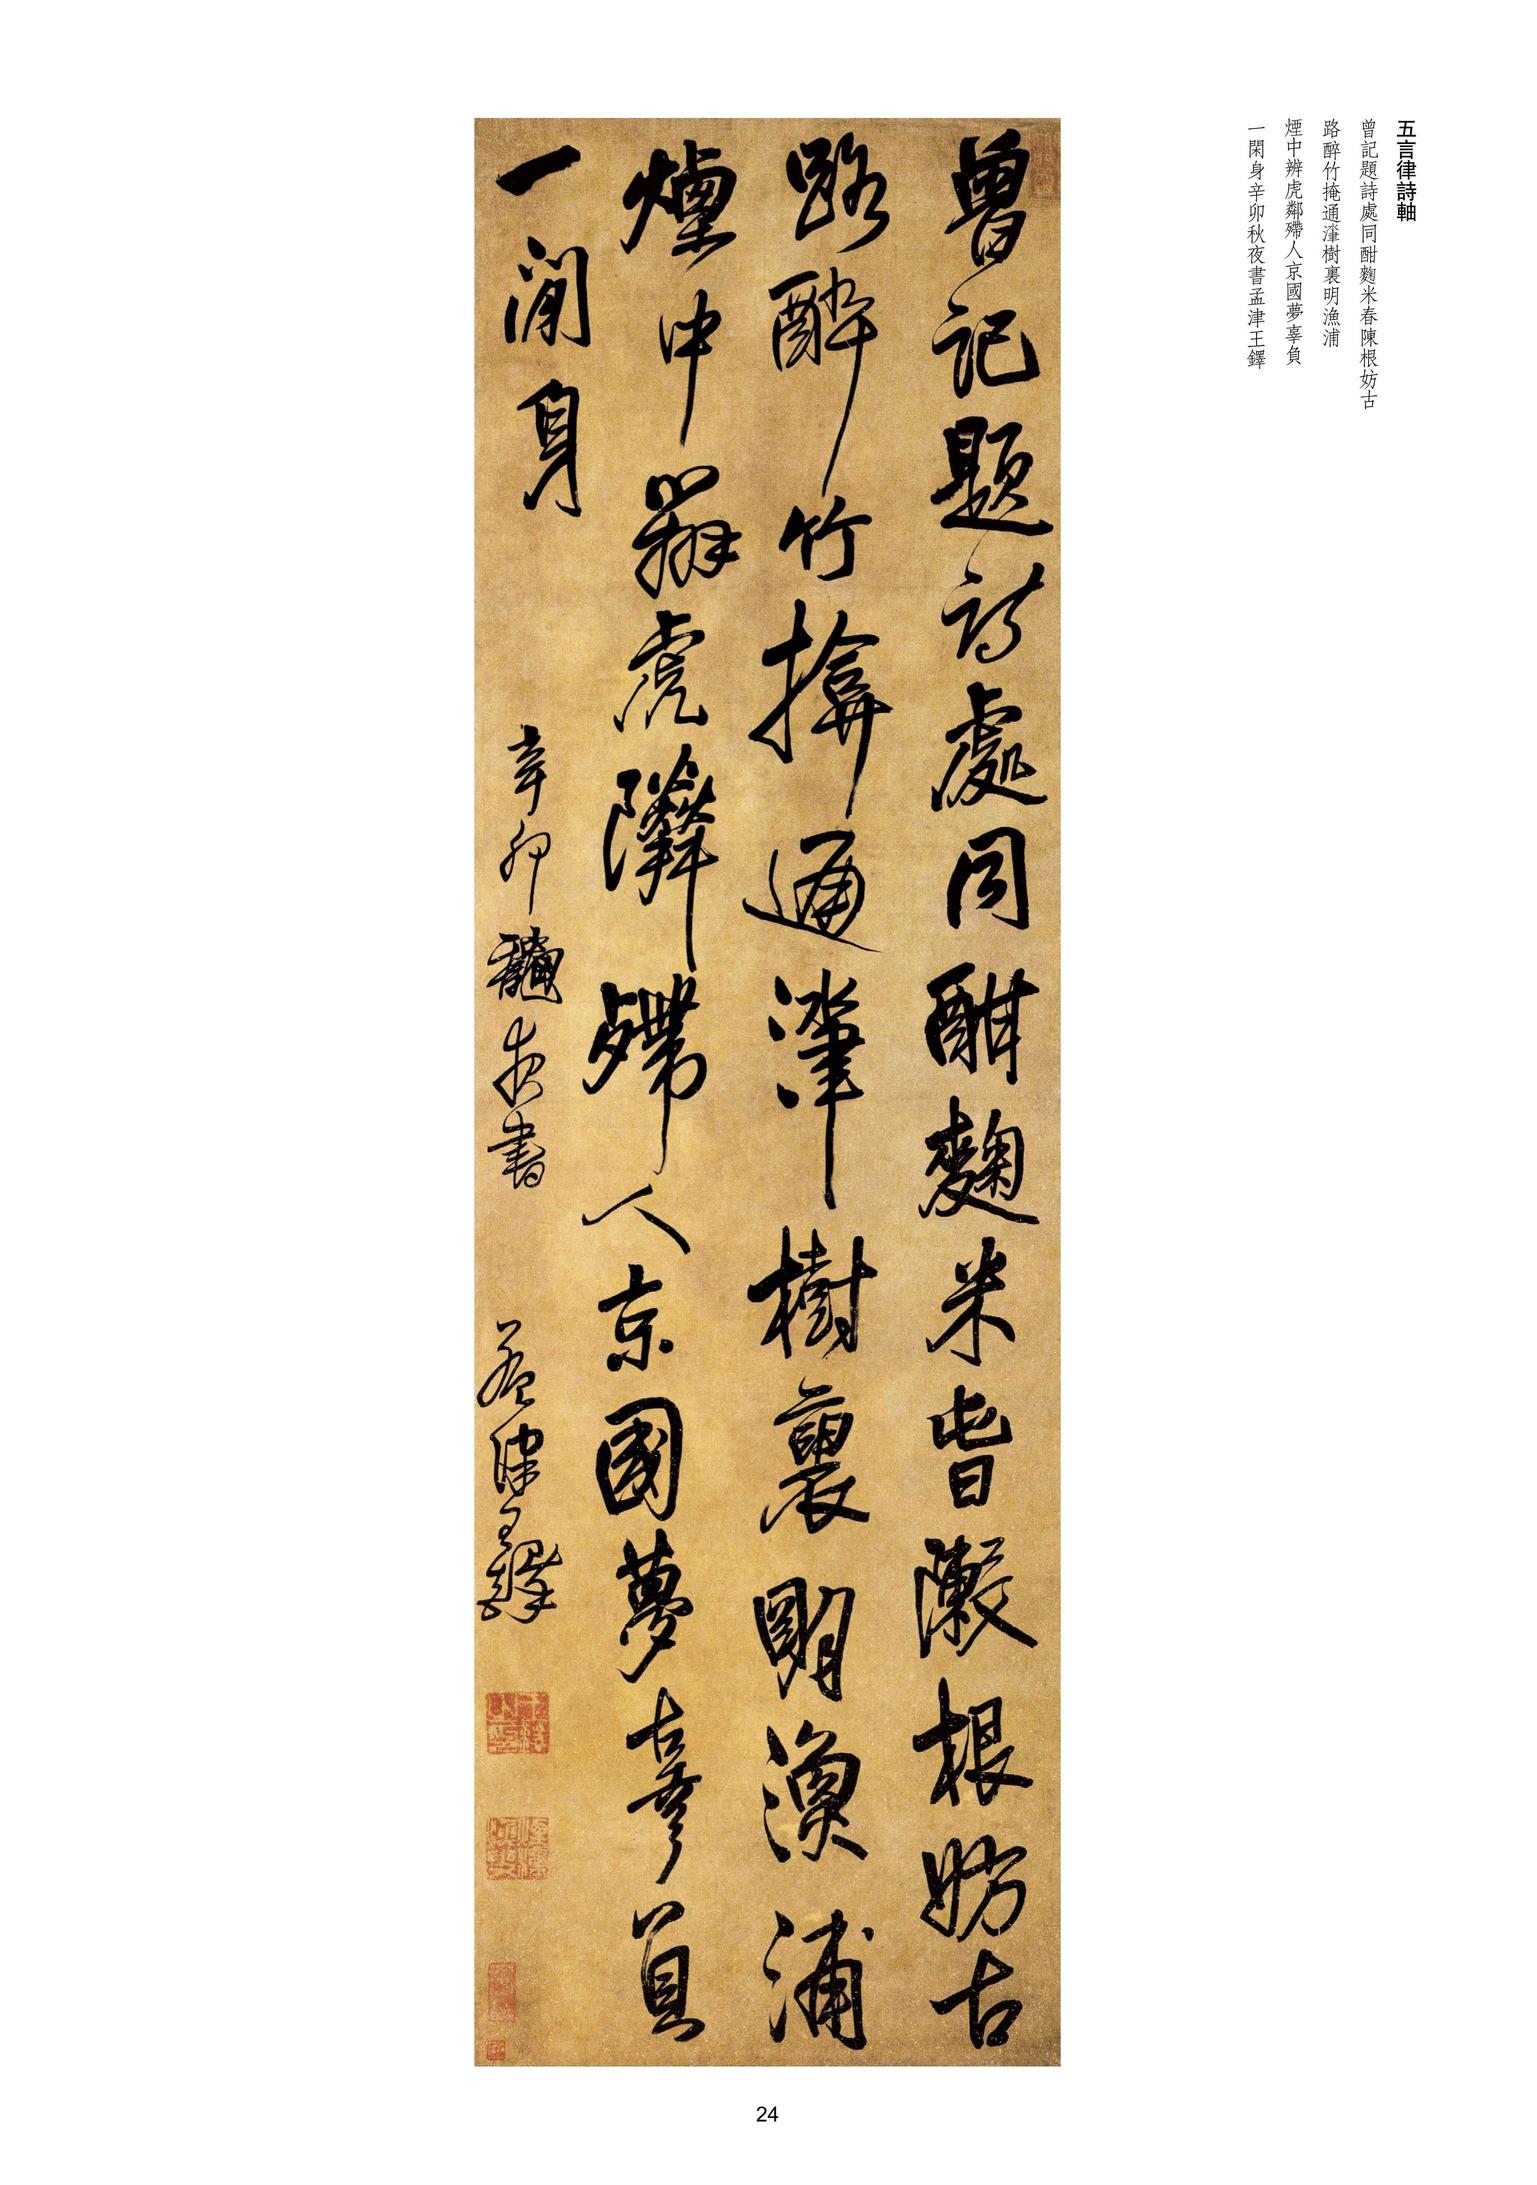 五言律詩軸
曾記題詩處同酣麴米春陳根妨古
路醉竹掩通漨樹裏明漁浦
煙中辨虎鄰殢人京國夢辜負
一閑身辛卯秋夜書孟津王鐸
曾記題詩處同酣麴米旾陳根妨古
路醉竹揜通津樹裏明漁浦
煙中辨虎鄰殢人京國夢辜負
一閒身
辛卯龝夜書
孟津王鐸
24